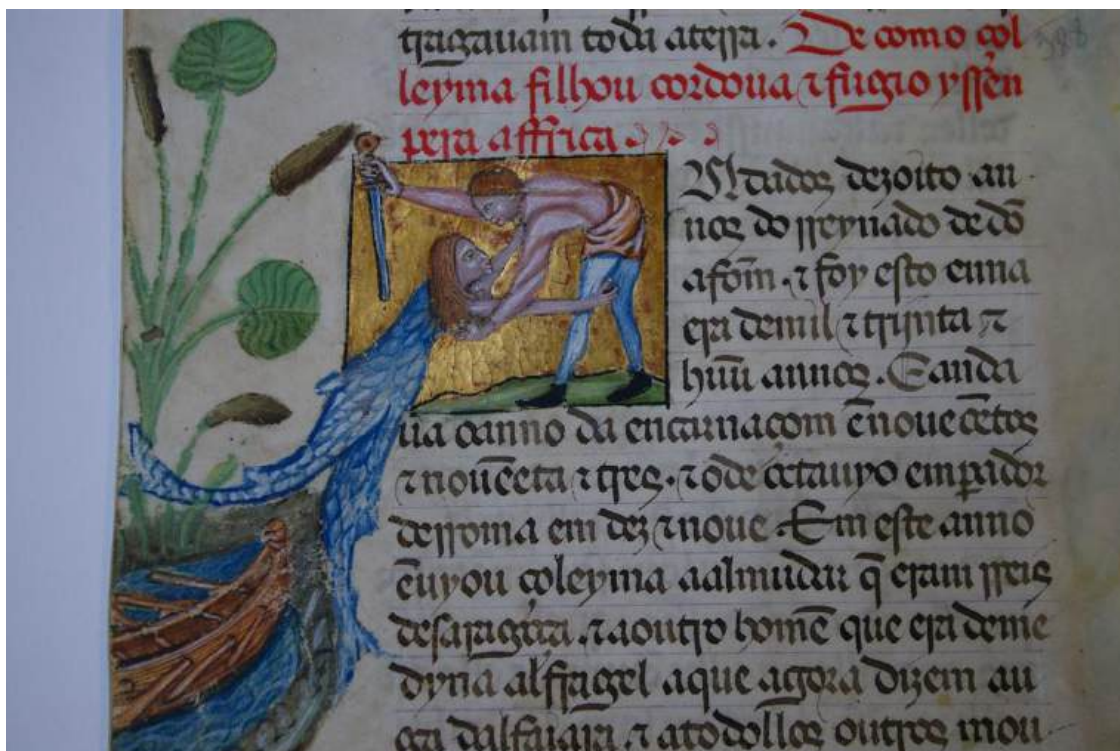 tragauam toda aterra. De como çol
leyma filhou cordoua ⁊ fugio yssen
pera affrica
Andados dezoito an
nos do rreynado de dõ
afom̃. ⁊ foy esto enna
era de mil ⁊ trijnta ⁊
hũu annos. E anda
ua oanno da encarnaçom ẽ noueçẽtos
⁊ nouẽeta ⁊ tres. ⁊ o de octauyo emp̃ador
de rroma em dez ⁊ noue. Em este anno
ẽuyou çoleyma aalmudar q̃ eram rreis
de saragoça. ⁊ aoutro homẽ que era de me
dyna alffagel aque agora dizem au
dalfaiara. ⁊ atodollos outros mou